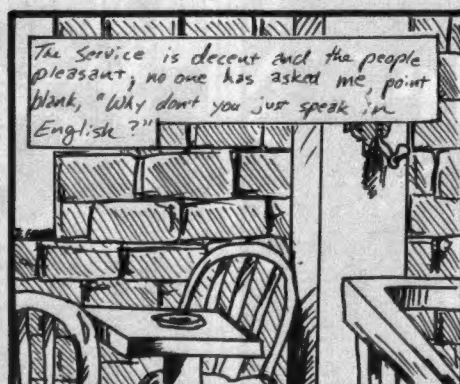 The service is decent and the people
pleasant; no one has asked me, point
blank, "Why don't you just speak in
English?"